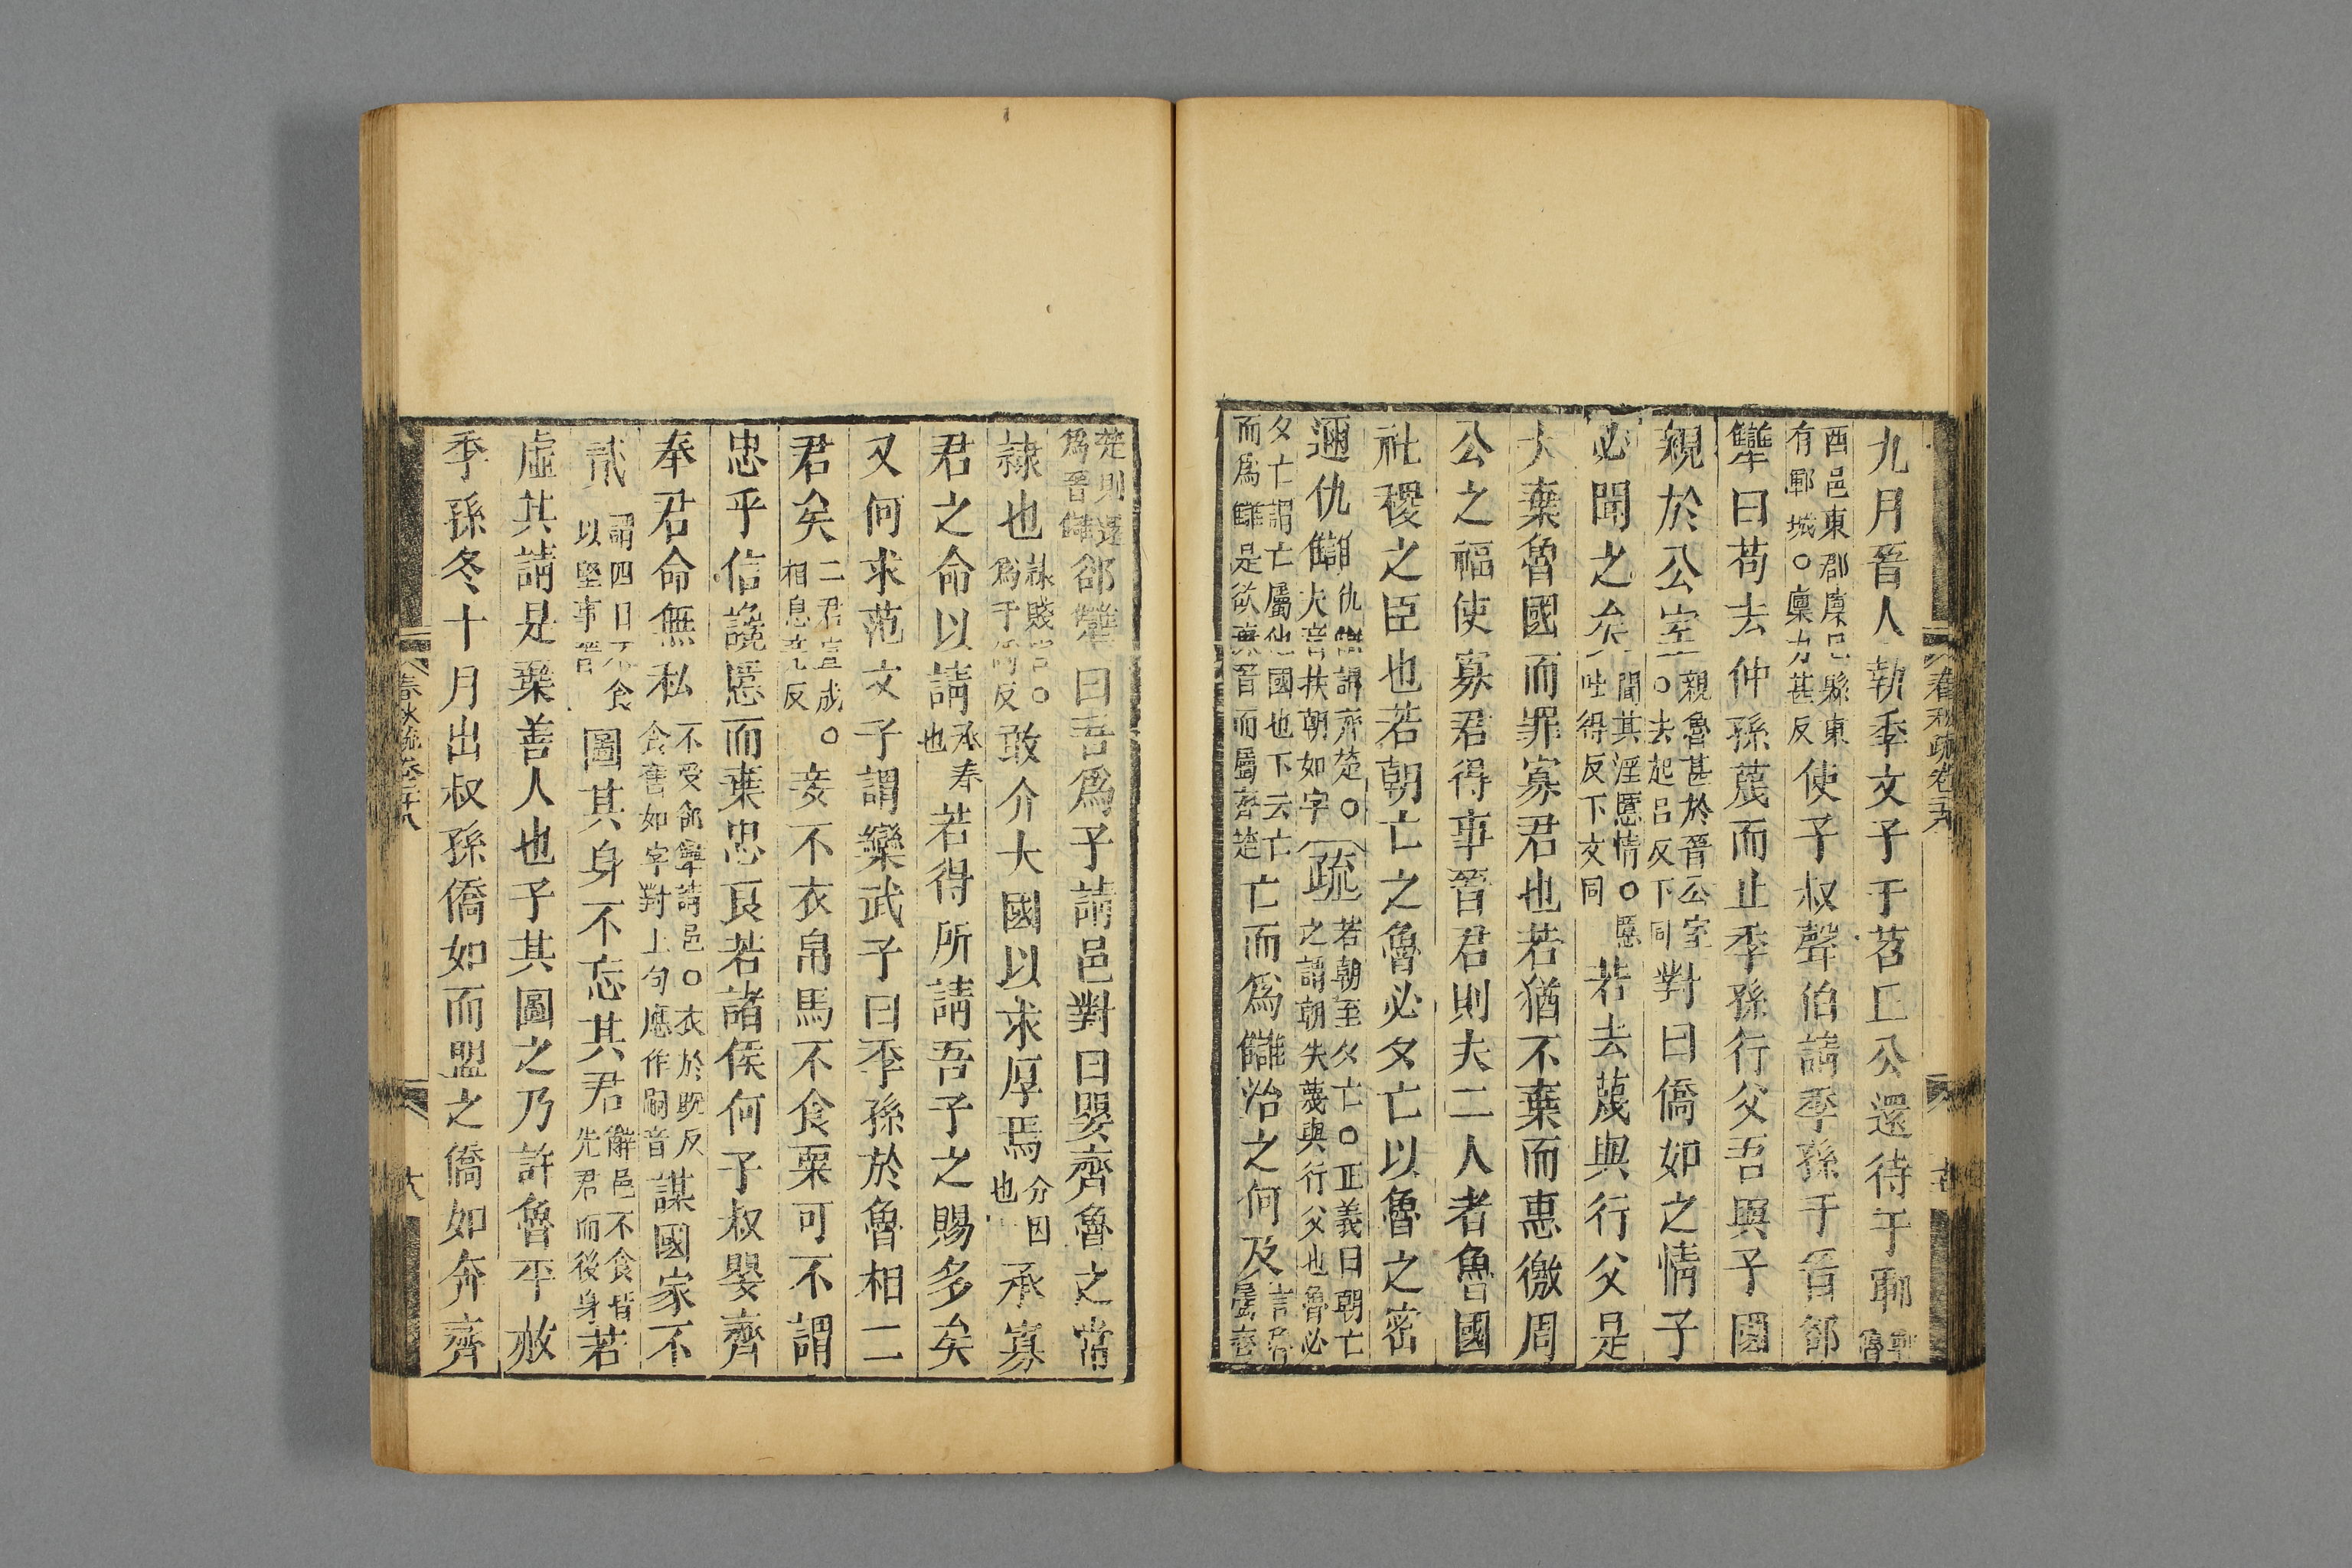 九月晉人執季文子于苕丘公還待于鄆 鄆魯
西邑東郡廩丘縣東有鄆城○廩力甚反 使子叔聲伯請季孫于晉郤
犨曰苟去仲孫蔑而止季孫行父吾與子國
親於公室 親魯甚於晉公室○去起呂反下同 對曰僑如之情子
必聞之矣 聞其淫慝情○慝吐得反下文同 若去蔑與行父是
大棄魯國而罪寡君也若猶不棄而惠徼周
公之福使寡君得事晉君則夫二人者魯國
社稷之臣也若朝亡之魯必夕亡以魯之密
邇仇讎 仇讎謂齊楚○夫音扶朝如字 疏 若朝至夕亡○正義曰朝亡之謂朝失蔑與行父也魯必
夕亡謂亡屬他國也下云亡而為讎是欲棄晉而屬齊楚 亡而為讎治之何及 言魯屬齊
楚則還為晉讎 郤犨曰吾為子請邑對曰嬰齊魯之常
隸也 隸賤官○為于偽反 敢介大國以求厚焉 介因也 承寡
君之命以請 承奉也 若得所請吾子之賜多矣
又何求范文子謂欒武子曰季孫於魯相二
君矣 二君宣成○相息亮反 妾不衣帛馬不食粟可不謂
忠乎信讒慝而棄忠良若諸侯何子叔嬰齊
奉君命無私 不受郤犨請邑○衣於既反食舊如字對上句應作嗣音 謀國家不
貳 謂四日不食以堅事晉 圖其身不忘其君 辭邑不食皆先君而後身 若
虛其請是棄善人也子其圖之乃許魯平赦
季孫冬十月出叔孫僑如而盟之僑如奔齊
春秋疏卷二十八
六